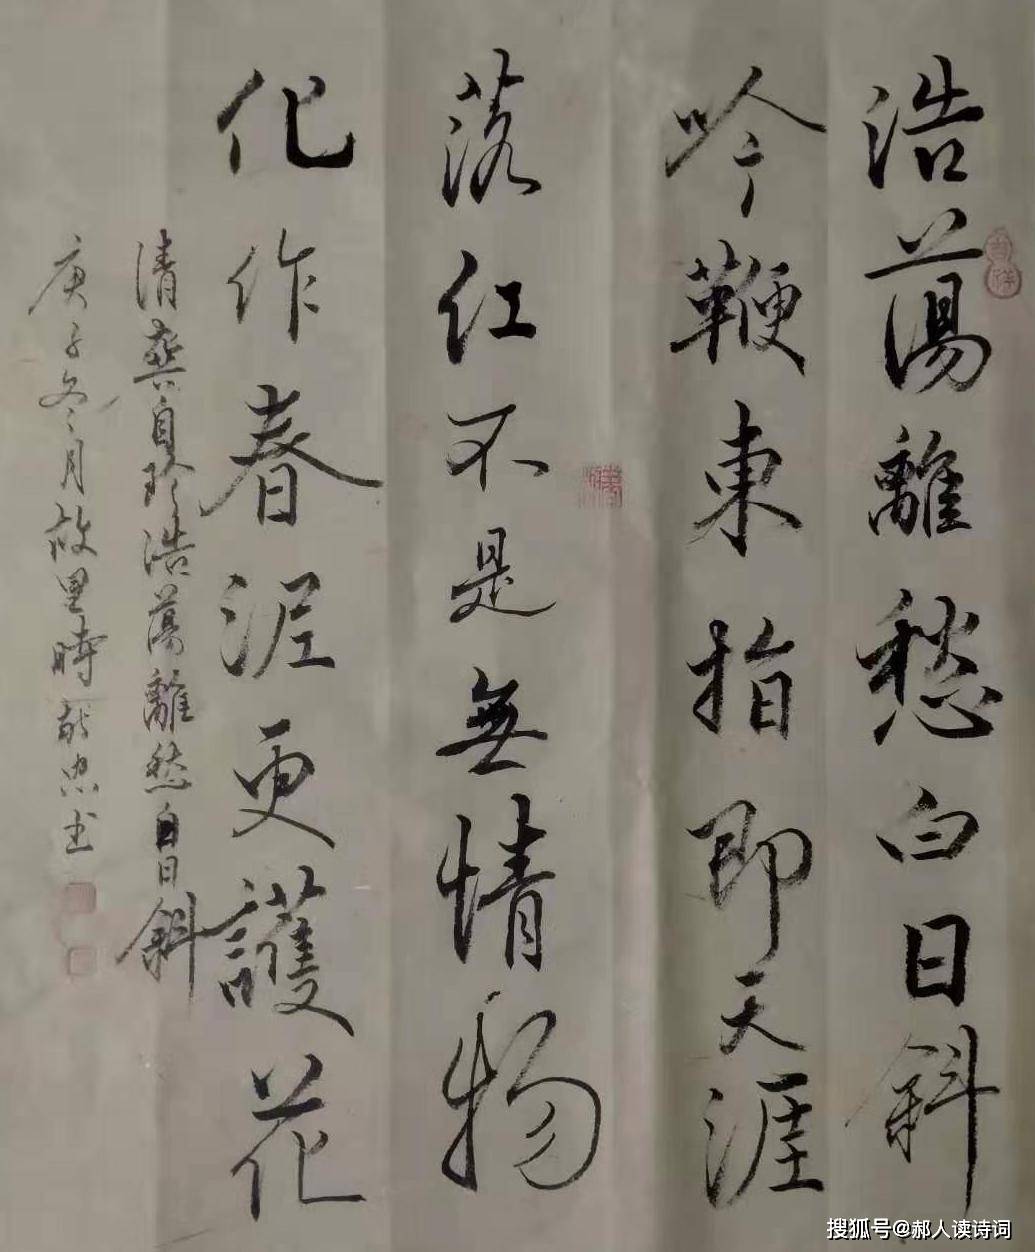 浩蕩離愁白日斜
吟鞭東指即天涯
落红不是無情物
化作春泥更護花
清龚自珍浩蕩離愁白日斜
庚子冬月故里時献忠书
搜狐号@郝人读诗词